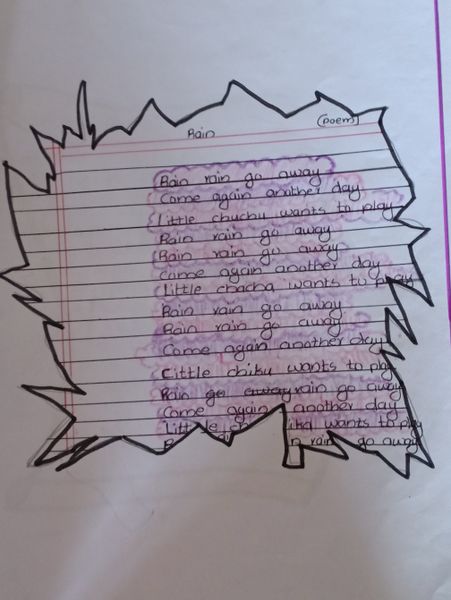 Rain (poem)
Rain rain go away
Come again another day
Little chuchu wants to play
Rain rain go away
Rain rain go away
come again another day
little chacha wants to play
Rain rain go away
Rain rain go away
Come again another day
Little chiku wants to play
Rain go away rain go away
Come again another day
wants to play
rain go away